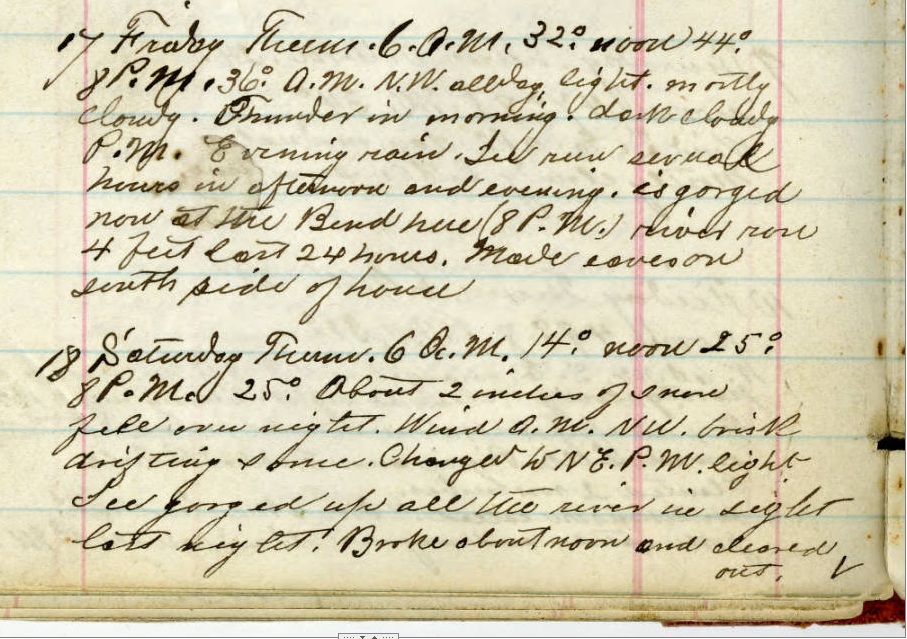 17 Friday Therm. 6. A.M. 32° noon 44°
8 P.M. 36° A.M. N.W. all day light. mostly
cloudy. Thunder in morning. dark cloudy
P.M. Evening rain. Ice run several
hours in afternoon and evening. is gorged
now at the Bend here (8 P.M.) river rose
4 feet last 24 hours. Made eaves on
south side of house
18 Saturday Therm. 6 A.M. 14° noon 25°
8 P.M. 25° About 2 inches of snow
fell over night. Wind A.M. N.W. brisk
drifting some. Changed to N E. P.M. light
Ice gorged up all the river in sight
last night. Broke about noon and cleared
out.